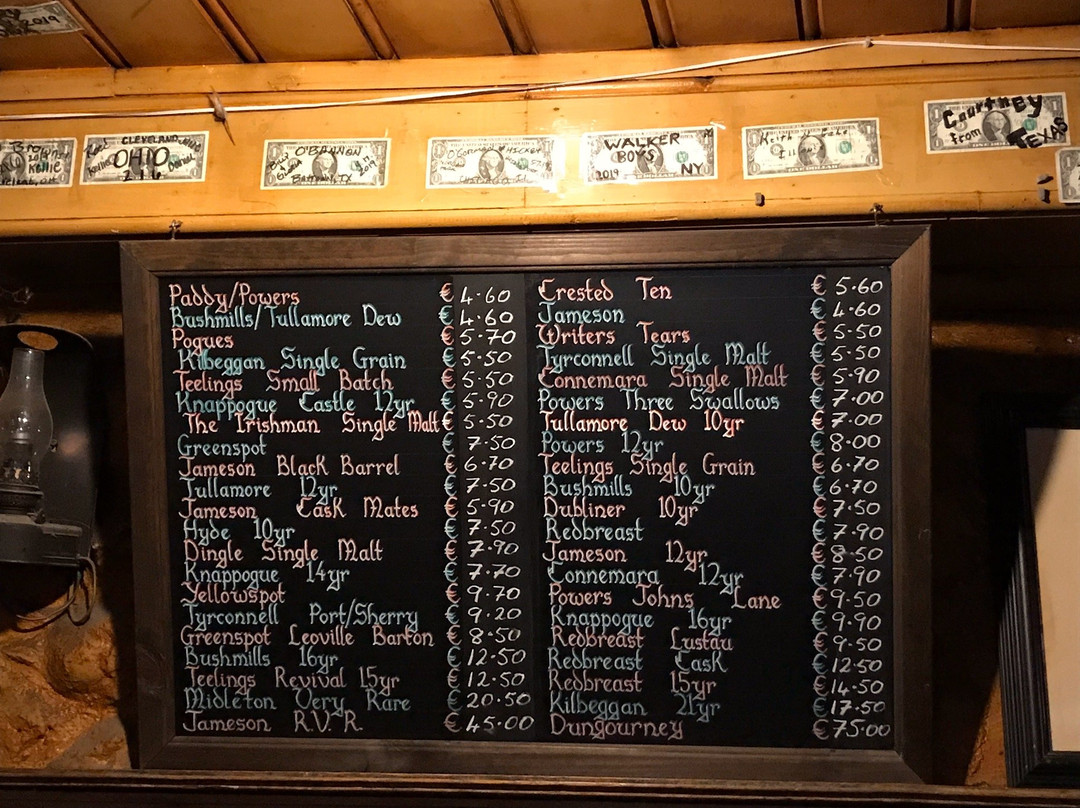 2019
Brown
2019
KELLIE
CLEVELAND
OHIO
216
BILL O'BANNON
WALKER
BOYS
2019 NY
Keith
Courtney
from TEXAS
Paddy/Powers € 4.60
Bushmills/Tullamore Dew € 4.60
Pogues € 5.70
Kilbeggan Single Grain € 5.50
Teelings Small Batch € 5.50
Knappogue Castle 12yr € 5.90
The Irishman Single Malt € 5.50
Greenspot € 7.50
Jameson Black Barrel € 6.70
Tullamore 12yr € 7.50
Jameson Cask Mates € 5.90
Hyde 10yr € 7.50
Dingle Single Malt € 7.90
Knappogue 14yr € 7.70
Yellowspot € 9.70
Tyrconnell Port/Sherry € 9.20
Greenspot Leoville Barton € 8.50
Bushmills 16yr € 12.50
Teelings Revival 15yr € 12.50
Midleton Very Rare € 20.50
Jameson R.V.R. € 45.00
Crested Ten € 5.60
Jameson € 4.60
Writers Tears € 5.50
Tyrconnell Single Malt € 5.50
Connemara Single Malt € 5.90
Powers Three Swallows € 7.00
Tullamore Dew 10yr € 7.00
Powers 12yr € 8.00
Teelings Single Grain € 6.70
Bushmills 10yr € 6.70
Dubliner 10yr € 7.50
Redbreast € 7.90
Jameson 12yr € 8.50
Connemara 12yr € 7.90
Powers Johns Lane € 9.50
Knappogue 16yr € 9.90
Redbreast Lustau € 9.50
Redbreast Cask € 12.50
Redbreast 15yr € 14.50
Kilbeggan 21yr € 17.50
Dungourney € 75.00